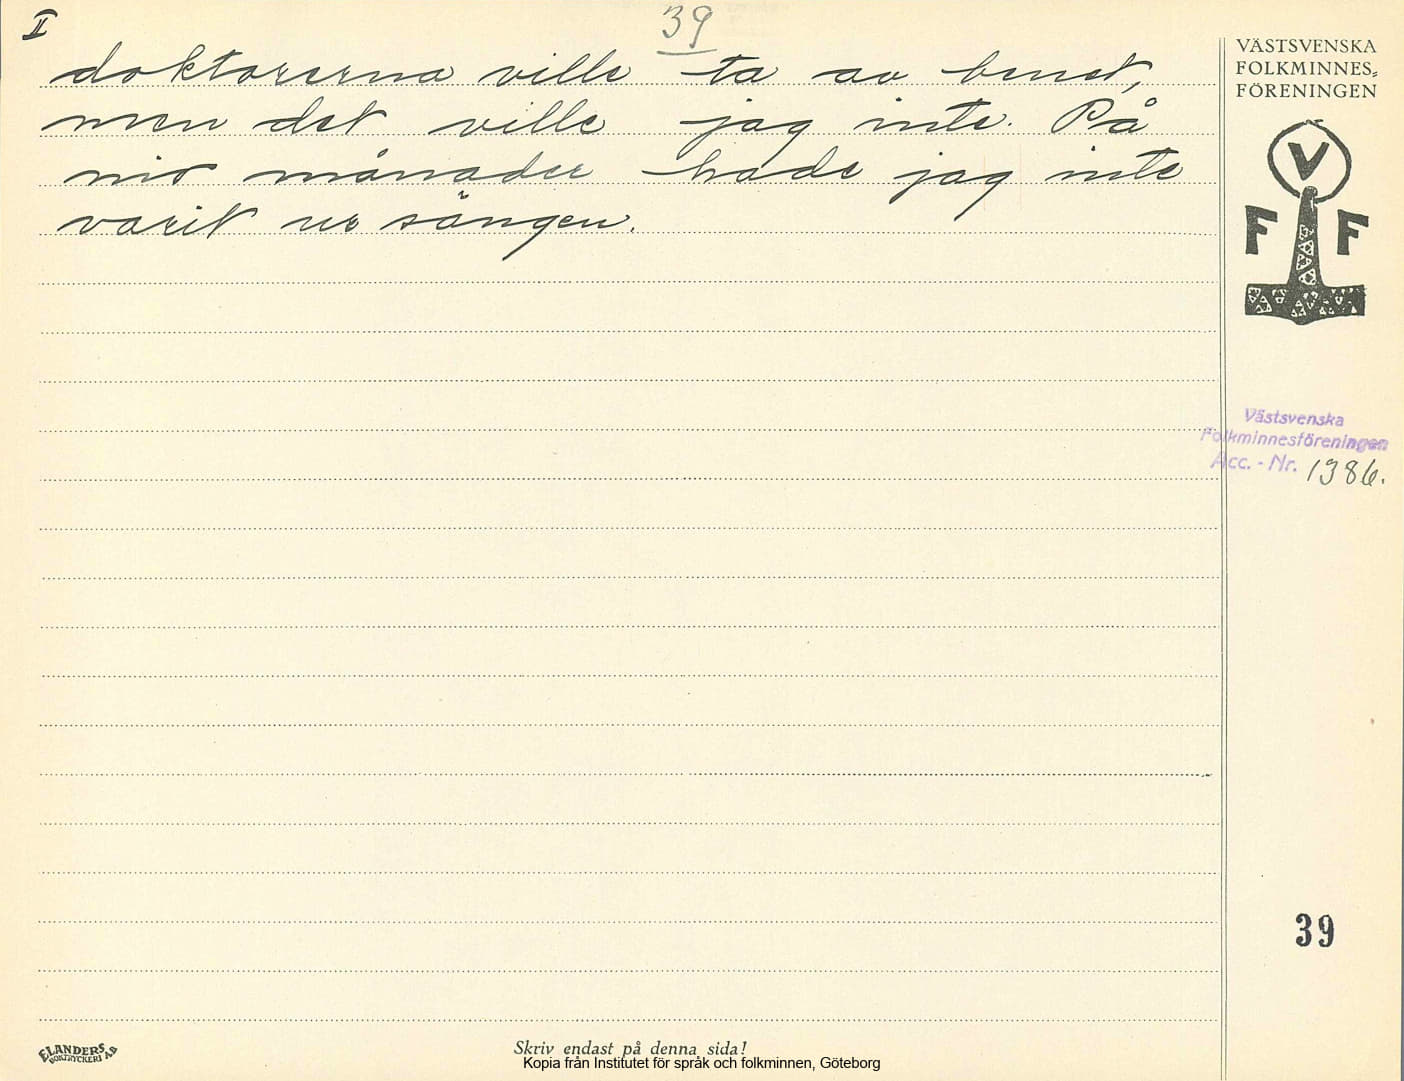 II
39
doktorerna ville ta av benet,
men det ville jag inte. På
nio månader hade jag inte
varit ur sängen.
VÄSTSVENSKA
FOLKMINNES-
FÖRENINGEN
V
F F
Västsvenska
Folkminnesföreningen
Acc. - Nr. 1386.
39
ELANDERS
BOKTRYCKERI AB
Skriv endast på denna sida!
Kopia från Institutet för språk och folkminnen, Göteborg